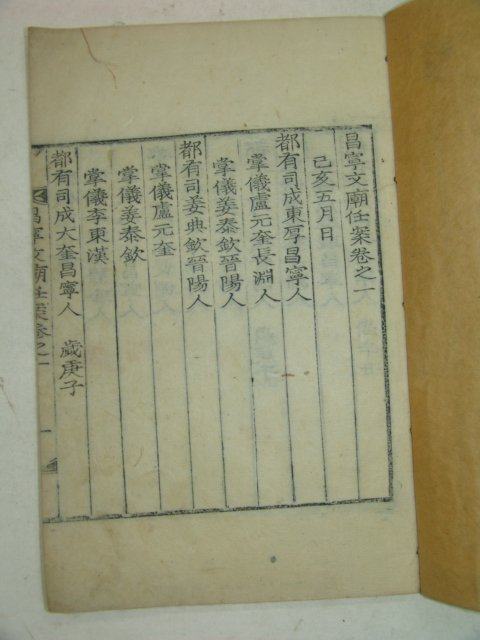 昌寧文廟任案卷之一
己亥五月日
都有司成東厚昌寧人
掌儀盧元奎長淵人
掌儀姜泰欽晉陽人
都有司姜典欽晉陽人
掌儀盧元奎
掌儀姜泰欽
掌儀李東漢
都有司成大奎昌寧人 歲庚子
昌寧文廟任案卷之一